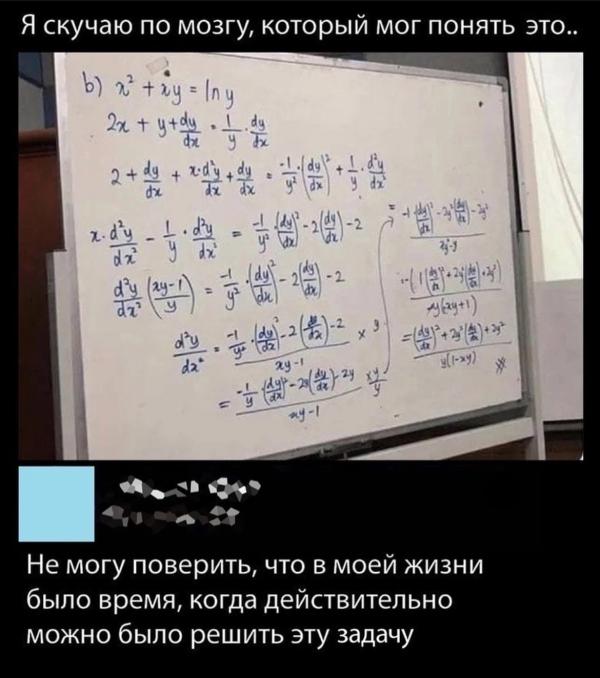 Я скучаю по мозгу, который мог понять это..
b) x² + xy = ln y
2x + y + dy/dx = 1/y · dy/dx
2 + dy/dx + x·d²y/dx² + dy/dx = -1/y² · (dy/dx)² + 1/y · d²y/dx²
x·d²y/dx² - 1/y · d²y/dx² = -1/y² · (dy/dx)² - 2(dy/dx) - 2
d²y/dx² (xy-1/y) = -1/y² · (dy/dx)² - 2(dy/dx) - 2
d²y/dx² = -1/y² · (dy/dx)² - 2(dy/dx) - 2 / xy-1 × y
= -1/y · (dy/dx)² - 2y(dy/dx) - 2y / xy-1 × y/y
= -1(dy/dx)² - 2y²(dy/dx) - 2y²
(1(dy/dx)² + 2y²(dy/dx) + 2y²) / y(xy+1)
= (dy/dx)² + 2y²(dy/dx) + 2y² / y(1-xy)
Не могу поверить, что в моей жизни
было время, когда действительно
можно было решить эту задачу